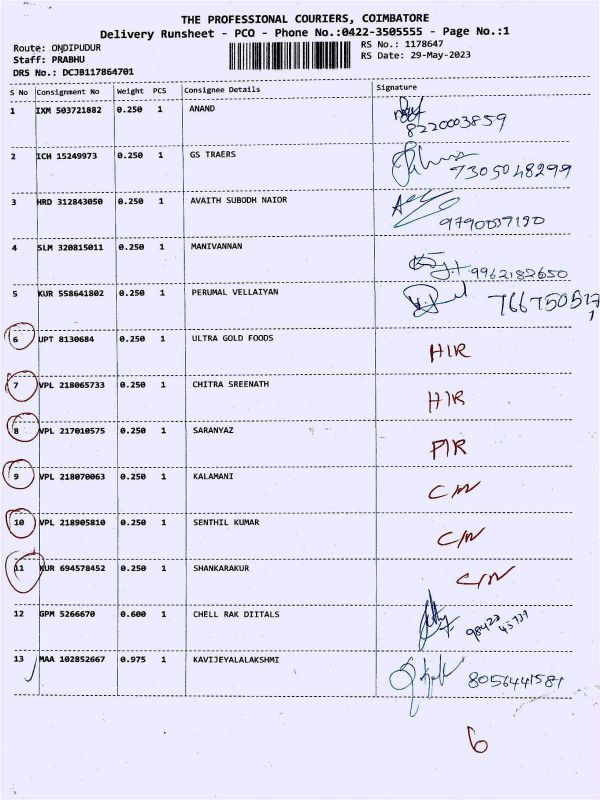 THE PROFESSIONAL COURIERS, COIMBATORE
Delivery Runsheet - PCO - Phone No.:0422-3505555 - Page No.:1
Route: ONDIPUDUR RS No.: 1178647
Staff: PRABHU RS Date: 29-May-2023
DRS No.: DCJB117864701
S No Consignment No Weight PCS Consignee Details Signature
1 IXM 503721882 0.250 1 ANAND
8220003859
2 ICH 15249973 0.250 1 GS TRAERS
7305048299
3 HRD 312843050 0.250 1 AVAITH SUBODH NAIOR
9790037190
4 SLM 320815011 0.250 1 MANIVANNAN
9962182650
5 KUR 558641802 0.250 1 PERUMAL VELLAIYAN
6 UPT 8130684 0.250 1 ULTRA GOLD FOODS
HIR
7 VPL 218065733 0.250 1 CHITRA SREENATH
HIR
8 VPL 217010575 0.250 1 SARANYAZ
PIR
9 VPL 218070063 0.250 1 KALAMANI
C/N
10 VPL 218905810 0.250 1 SENTHIL KUMAR
C/N
11 KUR 694578452 0.250 1 SHANKARAKUR
C/N
12 GPM 5266670 0.600 1 CHELL RAK DIITALS
98422 45737
13 MAA 102852667 0.975 1 KAVIJEYALALAKSHMI
8056441581
6